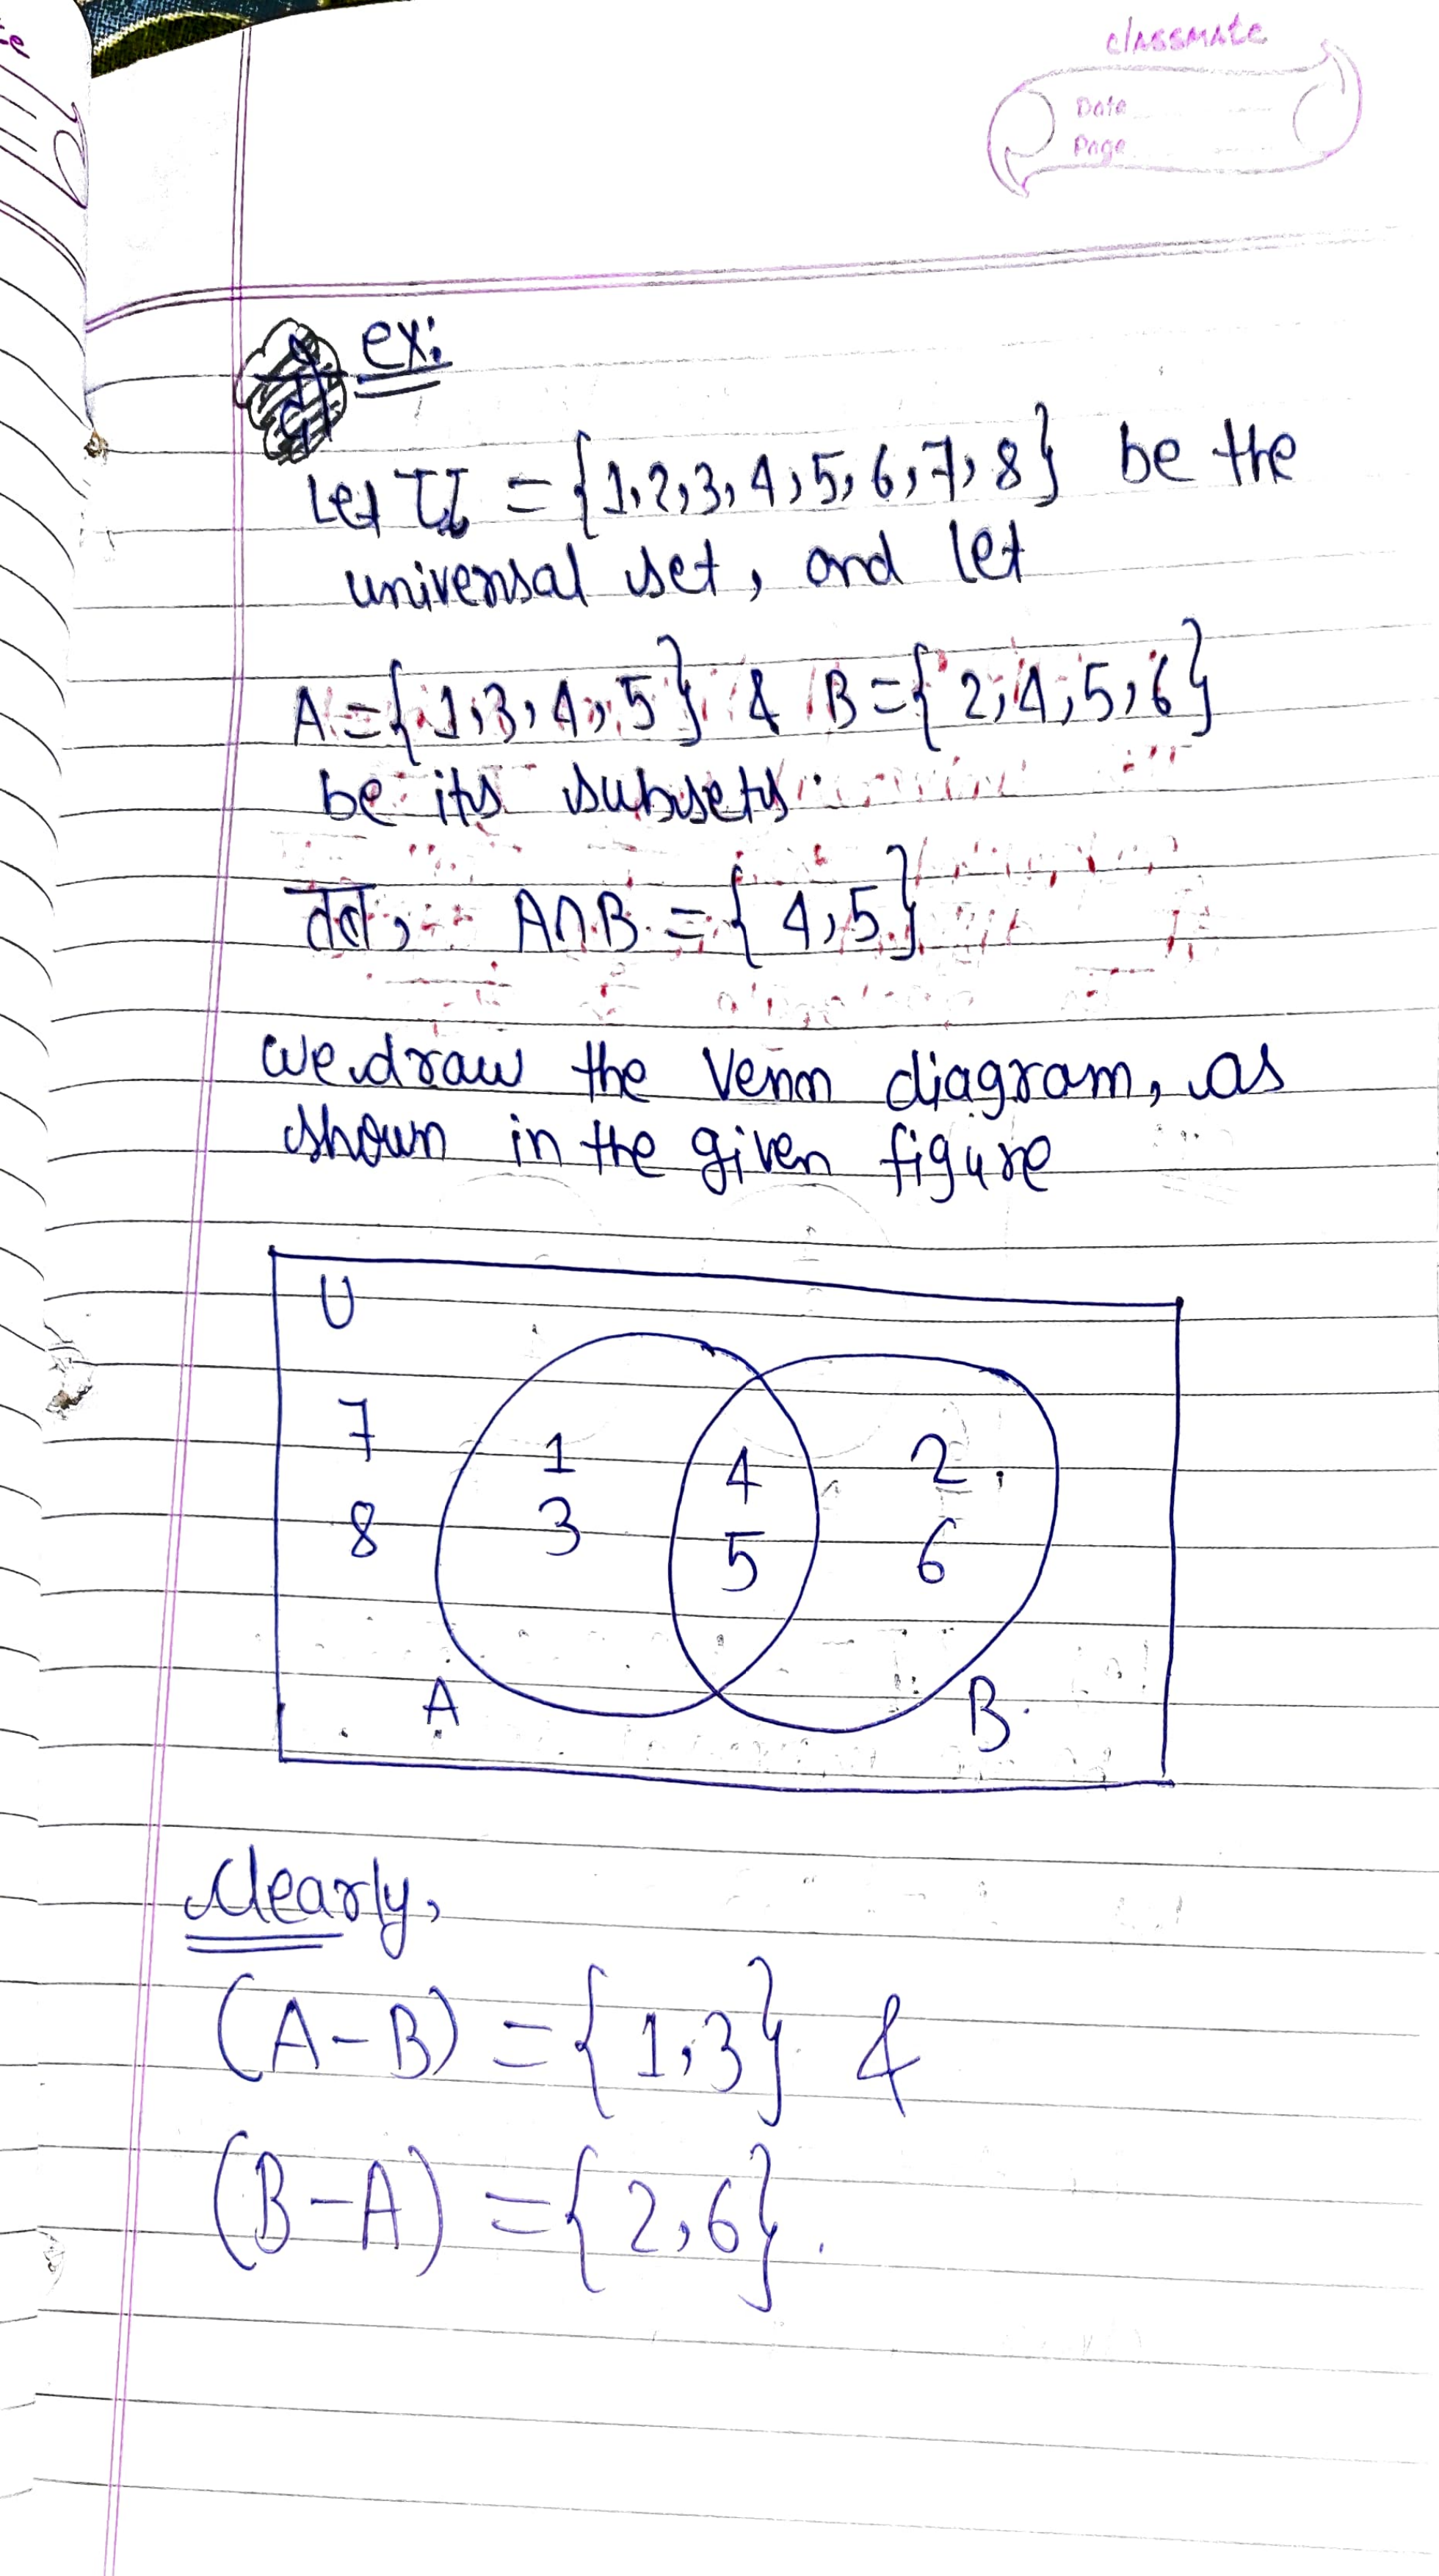 classmate
Date
Page
ex:
Let U = {1,2,3,4,5,6,7,8} be the
universal set, and let
A={1,3,4,5} & B={2,4,5,6}
be its subsets.
तव, A∩B = {4,5}
we draw the Venn diagram, as
shown in the given figure
U
7
1
4
2
8
3
5
6
A
B
Clearly,
(A-B) = {1,3} &
(B-A) = {2,6}.